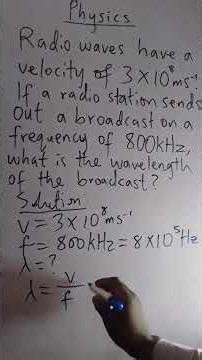 Physics
Radio waves have a
velocity of 3×10⁸ms⁻¹.
If a radio station sends
Out a broadcast on a
frequency of 800kHz,
what is the wavelength
of the broadcast?
Solution
v = 3×10⁸ms⁻¹
f = 800kHz = 8×10⁵Hz
λ = ?
λ = v/f